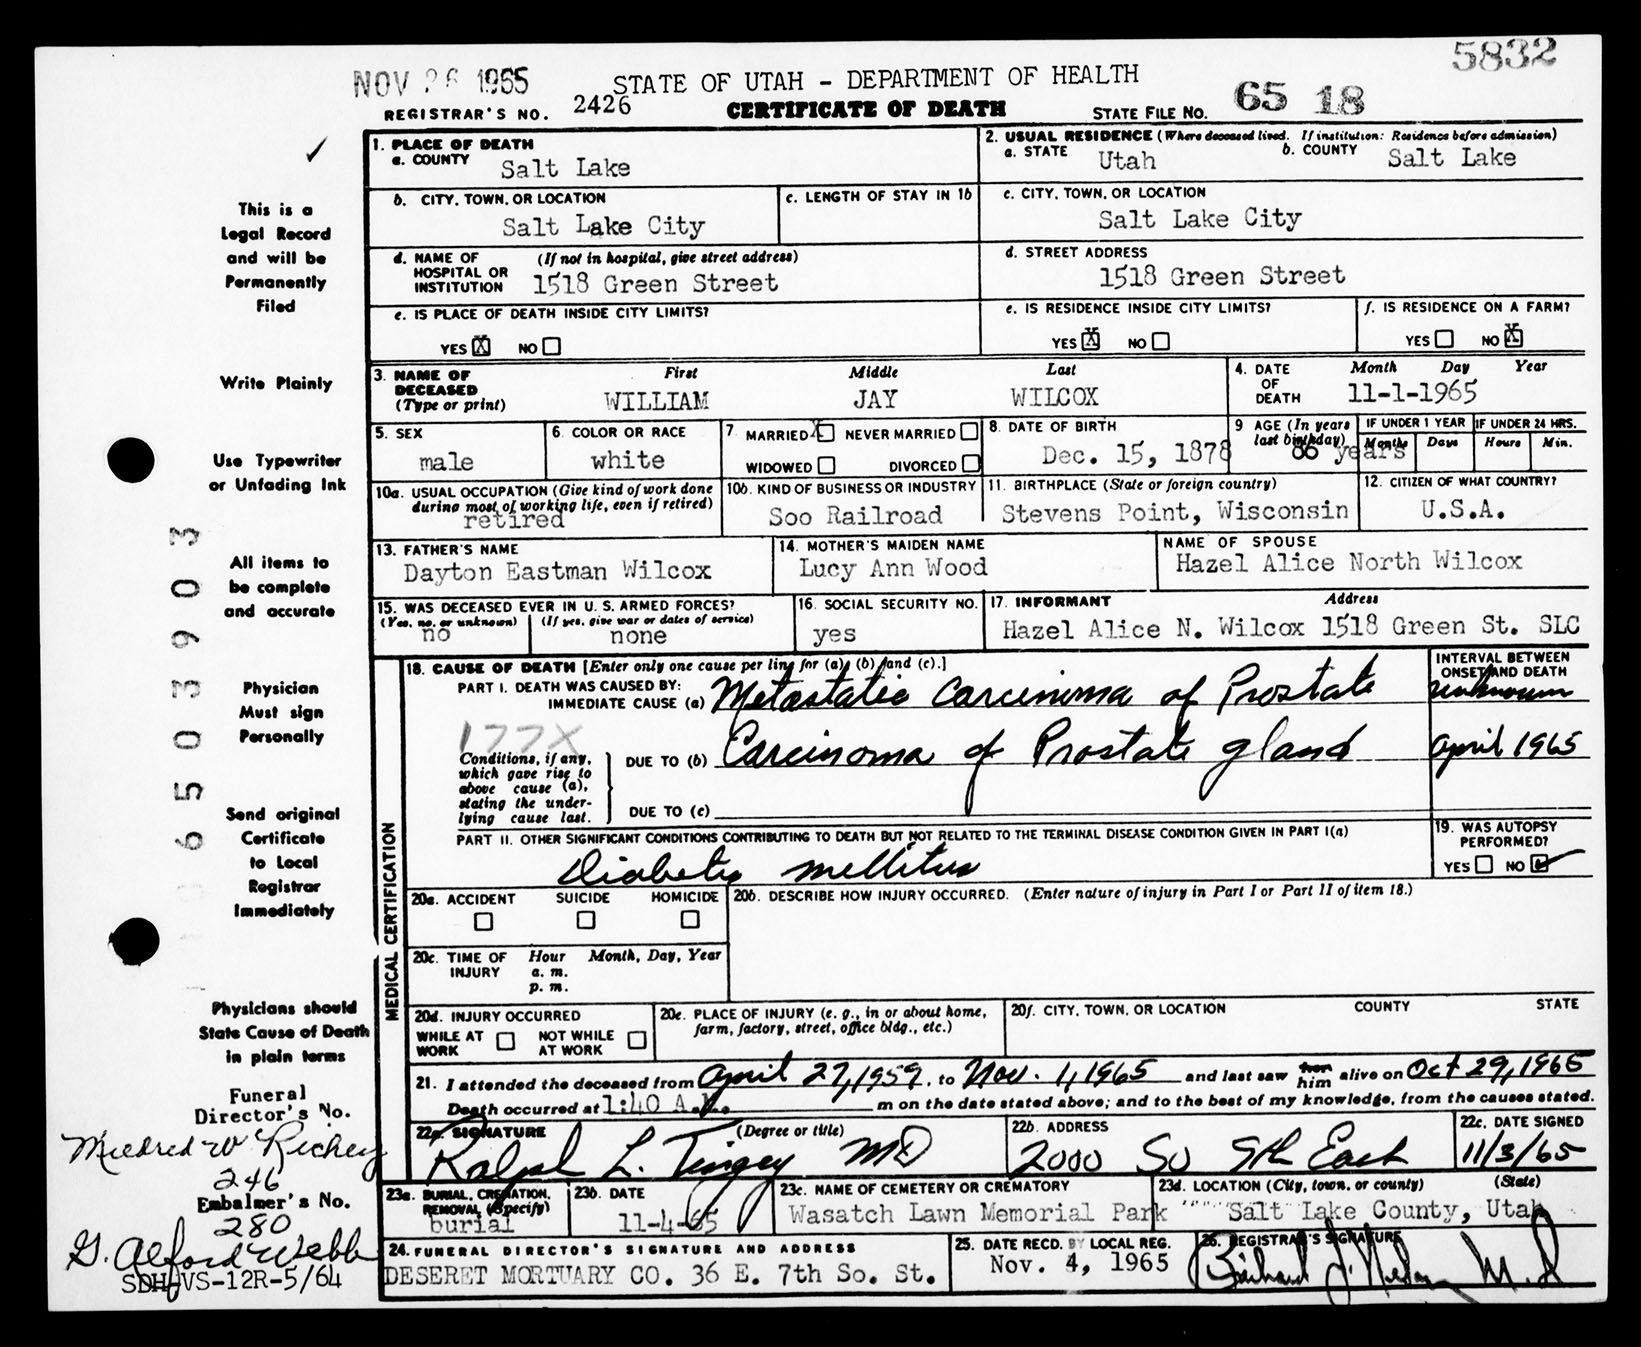 5832
NOV 26 1965 STATE OF UTAH - DEPARTMENT OF HEALTH
REGISTRAR'S NO. 2426 CERTIFICATE OF DEATH STATE FILE NO. 65 18
This is a
Legal Record
and will be
Permanently
Filed
Write Plainly
Use Typewriter
or Unfading Ink
All items to
be complete
and accurate
Physician
Must sign
Personally
Send original
Certificate
to Local
Registrar
Immediately
Physicians should
State Cause of Death
in plain terms
Funeral
Director's No.
Mildred W Richey
246
Embalmer's No.
280
G. Alford Webb
SDH-VS-12R-5/64
6503903
1. PLACE OF DEATH
a. COUNTY Salt Lake
2. USUAL RESIDENCE (Where deceased lived. If institution: Residence before admission)
a. STATE Utah b. COUNTY Salt Lake
b. CITY, TOWN, OR LOCATION
Salt Lake City
c. LENGTH OF STAY IN 1b
c. CITY, TOWN, OR LOCATION
Salt Lake City
d. NAME OF HOSPITAL OR INSTITUTION (If not in hospital, give street address)
1518 Green Street
d. STREET ADDRESS
1518 Green Street
e. IS PLACE OF DEATH INSIDE CITY LIMITS?
YES X NO
e. IS RESIDENCE INSIDE CITY LIMITS?
YES X NO
f. IS RESIDENCE ON A FARM?
YES NO X
3. NAME OF DECEASED (Type or print)
First Middle Last
WILLIAM JAY WILCOX
4. DATE OF DEATH Month Day Year
11-1-1965
5. SEX
male
6. COLOR OR RACE
white
7. MARRIED X NEVER MARRIED
WIDOWED DIVORCED
8. DATE OF BIRTH
Dec. 15, 1878
9 AGE (In years last birthday)
86 years
IF UNDER 1 YEAR
Months Days
IF UNDER 24 HRS.
Hours Min.
10a. USUAL OCCUPATION (Give kind of work done during most of working life, even if retired)
retired
10b. KIND OF BUSINESS OR INDUSTRY
Soo Railroad
11. BIRTHPLACE (State or foreign country)
Stevens Point, Wisconsin
12. CITIZEN OF WHAT COUNTRY?
U.S.A.
13. FATHER'S NAME
Dayton Eastman Wilcox
14. MOTHER'S MAIDEN NAME
Lucy Ann Wood
NAME OF SPOUSE
Hazel Alice North Wilcox
15. WAS DECEASED EVER IN U. S. ARMED FORCES?
(Yes, no, or unknown) (If yes, give war or dates of service)
no none
16. SOCIAL SECURITY NO.
yes
17. INFORMANT Address
Hazel Alice N. Wilcox 1518 Green St. SLC
MEDICAL CERTIFICATION
18. CAUSE OF DEATH [Enter only one cause per line for (a), (b), and (c).]
INTERVAL BETWEEN ONSET AND DEATH
PART I. DEATH WAS CAUSED BY:
IMMEDIATE CAUSE (a) Metastatic Carcinoma of Prostate unknown
177X
Conditions, if any, which gave rise to above cause (a), stating the underlying cause last.
DUE TO (b) Carcinoma of Prostate gland April 1965
DUE TO (c)
PART II. OTHER SIGNIFICANT CONDITIONS CONTRIBUTING TO DEATH BUT NOT RELATED TO THE TERMINAL DISEASE CONDITION GIVEN IN PART I(a)
Diabetes mellitus
19. WAS AUTOPSY PERFORMED?
YES NO
20a. ACCIDENT SUICIDE HOMICIDE
20b. DESCRIBE HOW INJURY OCCURRED. (Enter nature of injury in Part I or Part II of item 18.)
20c. TIME OF INJURY Hour Month, Day, Year
a. m.
p. m.
20d. INJURY OCCURRED
WHILE AT WORK NOT WHILE AT WORK
20e. PLACE OF INJURY (e. g., in or about home, farm, factory, street, office bldg., etc.)
20f. CITY, TOWN, OR LOCATION COUNTY STATE
21. I attended the deceased from April 27, 1959, to Nov. 1, 1965 and last saw her him alive on Oct 29, 1965
Death occurred at 1:40 A.M. m on the date stated above; and to the best of my knowledge, from the causes stated.
22a. SIGNATURE (Degree or title)
Ralph L. Tingey MD
22b. ADDRESS
2000 So 9th East
22c. DATE SIGNED
11/3/65
23a. BURIAL, CREMATION, REMOVAL (Specify)
burial
23b. DATE
11-4-65
23c. NAME OF CEMETERY OR CREMATORY
Wasatch Lawn Memorial Park
23d. LOCATION (City, town, or county) (State)
Salt Lake County, Utah
24. FUNERAL DIRECTOR'S SIGNATURE AND ADDRESS
DESERET MORTUARY CO. 36 E. 7th So. St.
25. DATE RECD. BY LOCAL REG.
Nov. 4, 1965
26. REGISTRAR'S SIGNATURE
M.D.